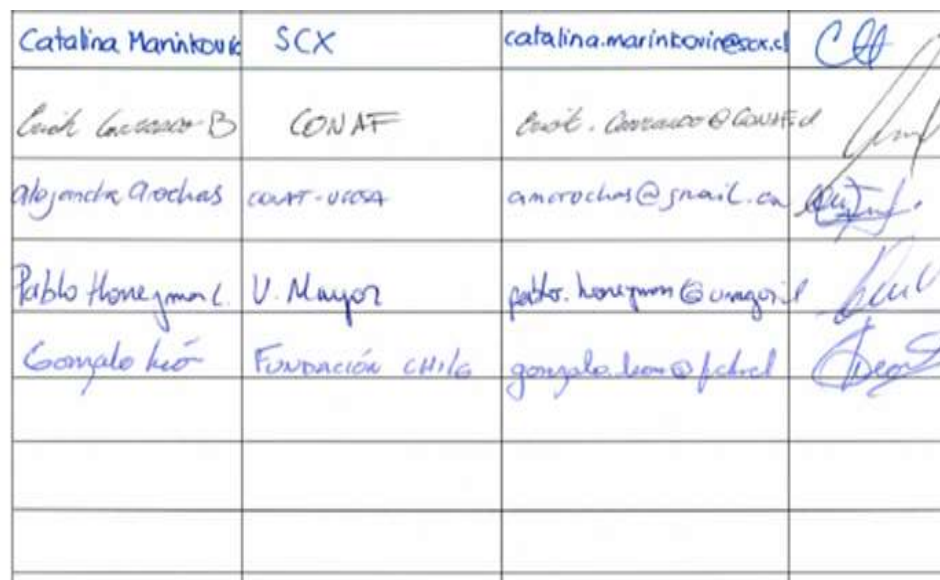 Catalina Marinkovic SCX catalina.marinkovic@scx.cl
Erick Carrasco B CONAF Erick.Carrasco@CONAF.cl
alejandra arochas CONAF-UCOSA amarochas@gmail.com
Pablo Honeyman L. U. Mayor pablo.honeyman@umayor.cl
Gonzalo León FUNDACIÓN CHILE gonzalo.leon@fch.cl